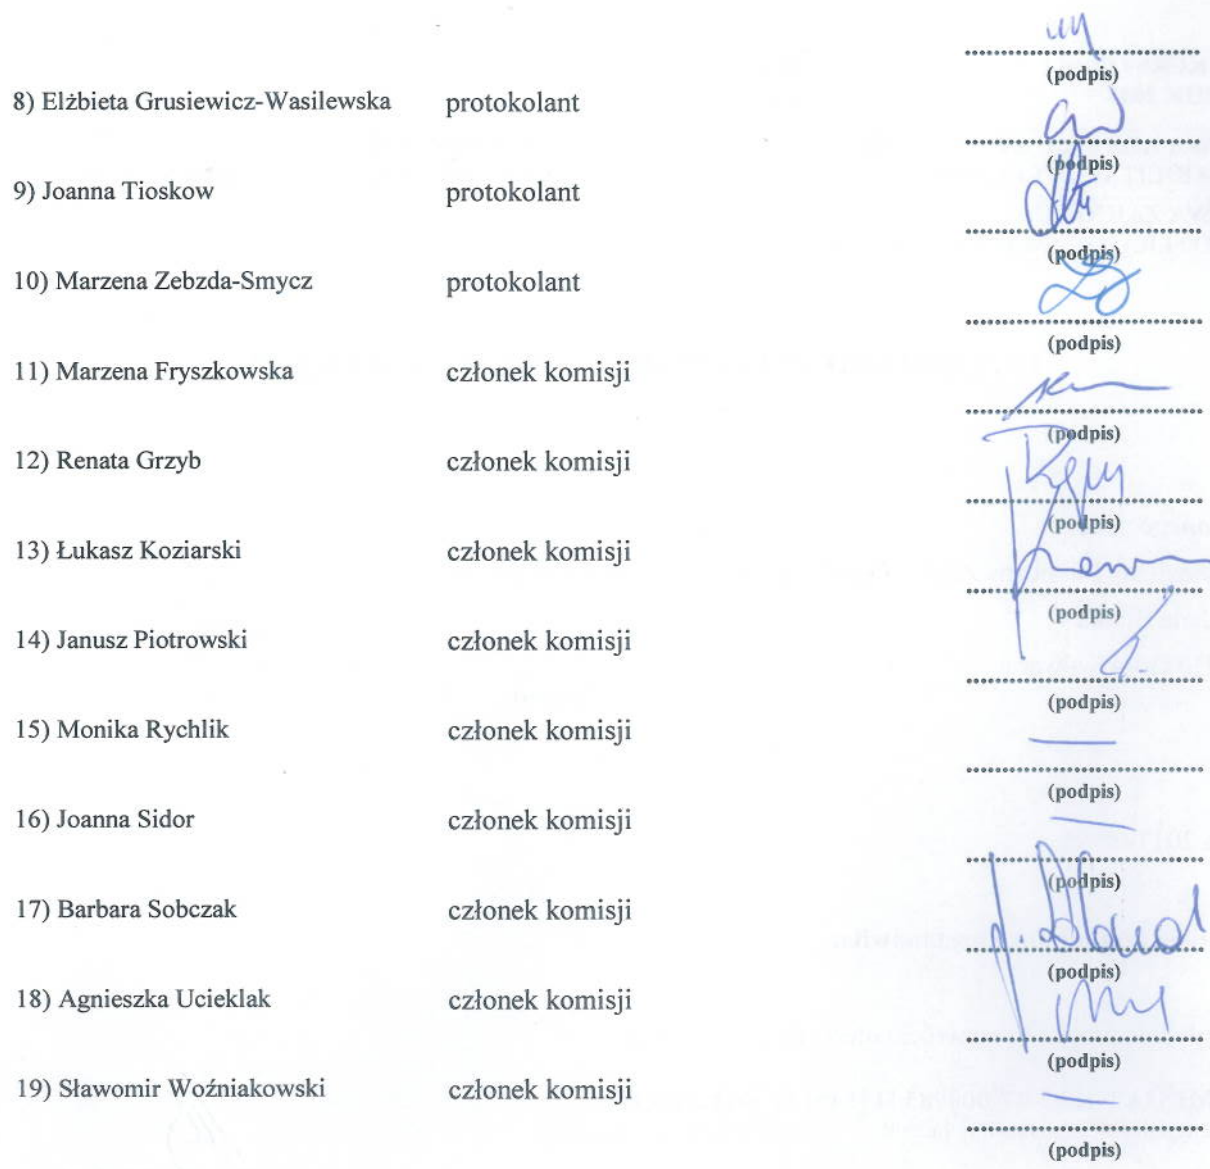 (podpis)
8) Elżbieta Grusiewicz-Wasilewska protokolant
(podpis)
9) Joanna Tioskow protokolant
(podpis)
10) Marzena Zebzda-Smycz protokolant
(podpis)
11) Marzena Fryszkowska członek komisji
(podpis)
12) Renata Grzyb członek komisji
(podpis)
13) Łukasz Koziarski członek komisji
(podpis)
14) Janusz Piotrowski członek komisji
(podpis)
15) Monika Rychlik członek komisji
(podpis)
16) Joanna Sidor członek komisji
(podpis)
17) Barbara Sobczak członek komisji
(podpis)
18) Agnieszka Ucieklak członek komisji
(podpis)
19) Sławomir Woźniakowski członek komisji
(podpis)